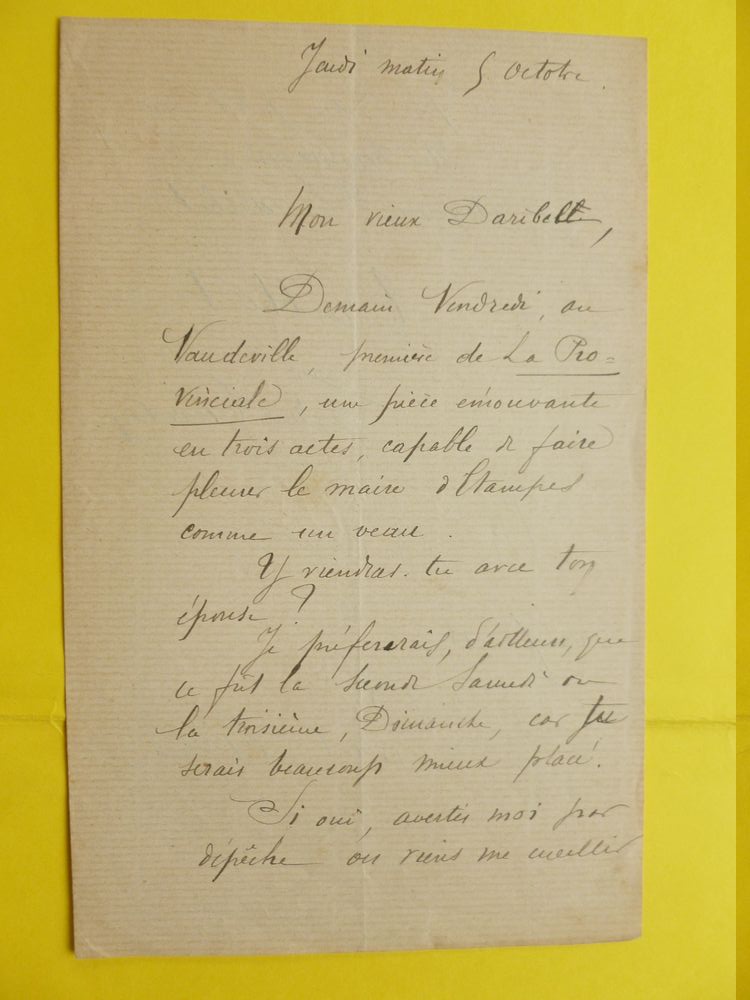 Jeudi matin 5 Octobre.
Mon vieux Daribelle,
Demain Vendredi, au
Vaudeville, première de La Pro=
vinciale, une pièce émouvante
en trois actes, capable de faire
pleurer le maire d'Etampes
comme un veau.
Y viendras-tu avec ton
épouse ?
Je préfererais, d'ailleurs, que
ce fût la seconde Samedi ou
la troisième, Dimanche, car tu
serais beaucoup mieux placé.
Si oui, avertis moi par
dépêche ou viens me cueillir